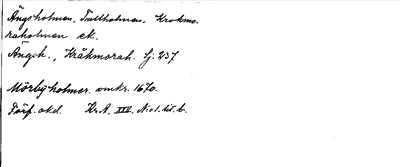 Ängsholmen, Tallholmen, Krokmo-
raholmen etc.
Ängsk., Kråkmorah. Sj. 237
Mörbyholmar. omkr. 1670.
Förf. okd. Kr.A. XIII. N:o 1. lit. b.